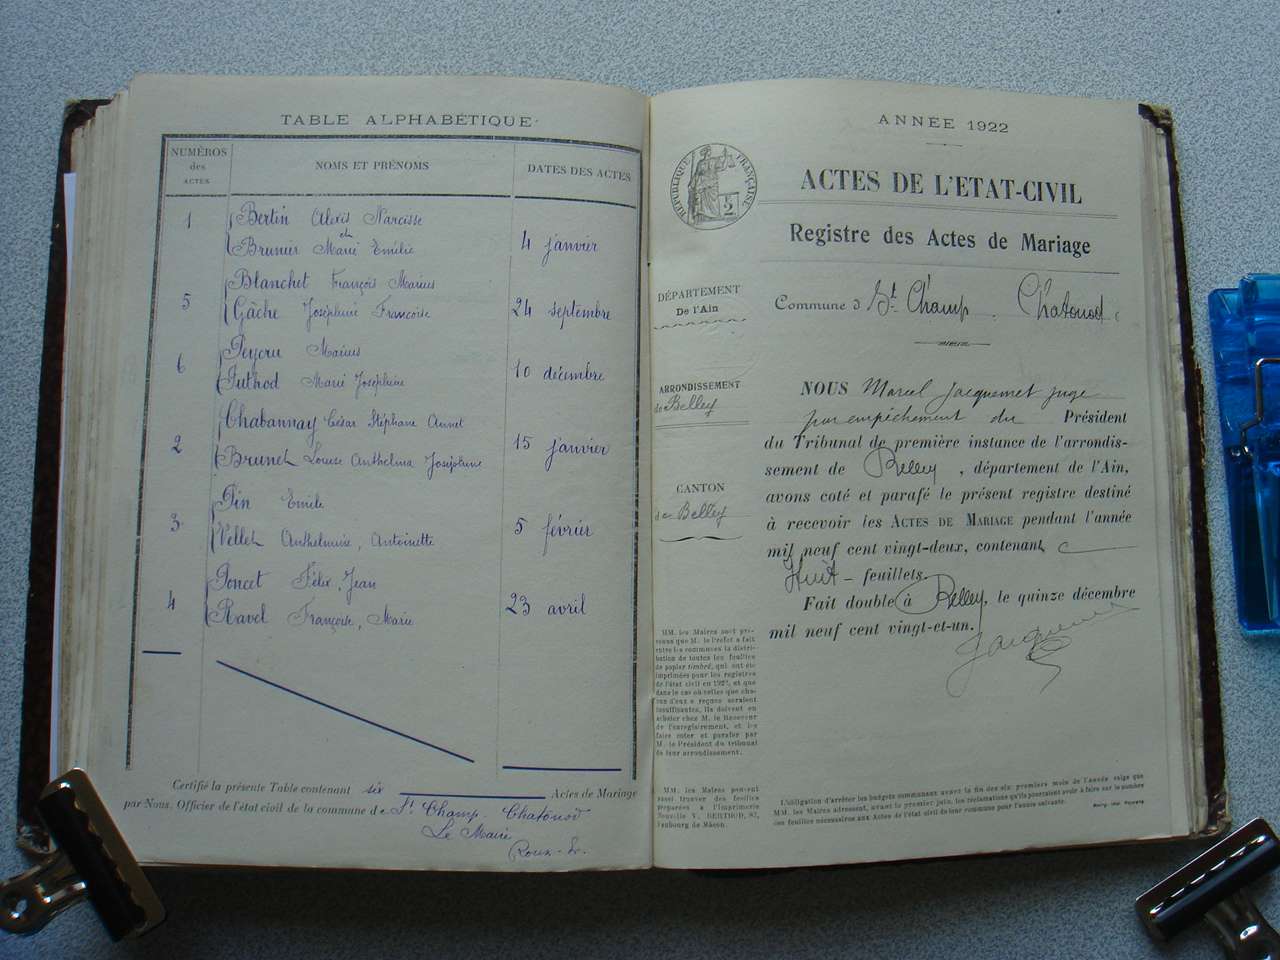 TABLE ALPHABÉTIQUE
NUMÉROS
des
ACTES
NOMS ET PRÉNOMS
DATES DES ACTES
1
Bertin Alexis Narcisse
et
Brunier Marie Emilie
4 janvier
5
Blanchet François Marius
Gâche Joséphine Françoise
24 septembre
6
Peycru Marius
Juthod Marie Joséphine
10 décembre
2
Chabannay César Stéphane Annet
Brunet Louise Anthelma Joséphine
15 janvier
3
Pin Emile
Vellet Anthelmine, Antoinette
5 février
4
Poncet Félix, Jean
Ravel Françoise, Marie
23 avril
Certifié la présente Table contenant six Actes de Mariage
par Nous, Officier de l'état civil de la commune de St Champ Chatonod
Le Maire
Roux
ANNÉE 1922
RÉPUBLIQUE FRANÇAISE
ACTES DE L'ETAT-CIVIL
Registre des Actes de Mariage
DÉPARTEMENT
De l'Ain
Commune d St Champ Chatonod
ARRONDISSEMENT
de Belley
CANTON
de Belley
NOUS Marcel Jacquemet juge
par empêchement du Président
du Tribunal de première instance de l'arrondis-
sement de Belley, département de l'Ain,
avons coté et parafé le présent registre destiné
à recevoir les ACTES DE MARIAGE pendant l'année
mil neuf cent vingt-deux, contenant
Huit feuillets.
Fait double à Belley, le quinze décembre
mil neuf cent vingt-et-un.
Jacquemet
MM. les Maires sont pré-
venus que M. le Préfet a fait
entre les communes la distri-
bution de toutes les feuilles
de papier timbré, qui ont été
imprimées pour les registres
de l'état civil en 1922, et que
dans le cas où celles que cha-
cun d'eux a reçues seraient
insuffisantes, ils doivent en
acheter chez M. le Receveur
de l'enregistrement, et les
faire coter et parafer par
M. le Président du tribunal
de leur arrondissement.
MM. les Maires peuvent
aussi trouver des feuilles
préparées à l'Imprimerie
Nouvelle V. BERTHOD, 87,
faubourg de Mâcon.
L'obligation d'arrêter les budgets communaux avant la fin des six premiers mois de l'année exige que
MM. les Maires adressent, avant le premier juin, les réclamations qu'ils pourraient avoir à faire sur le nombre
des feuilles nécessaires aux Actes de l'état civil de leur commune pour l'année suivante.